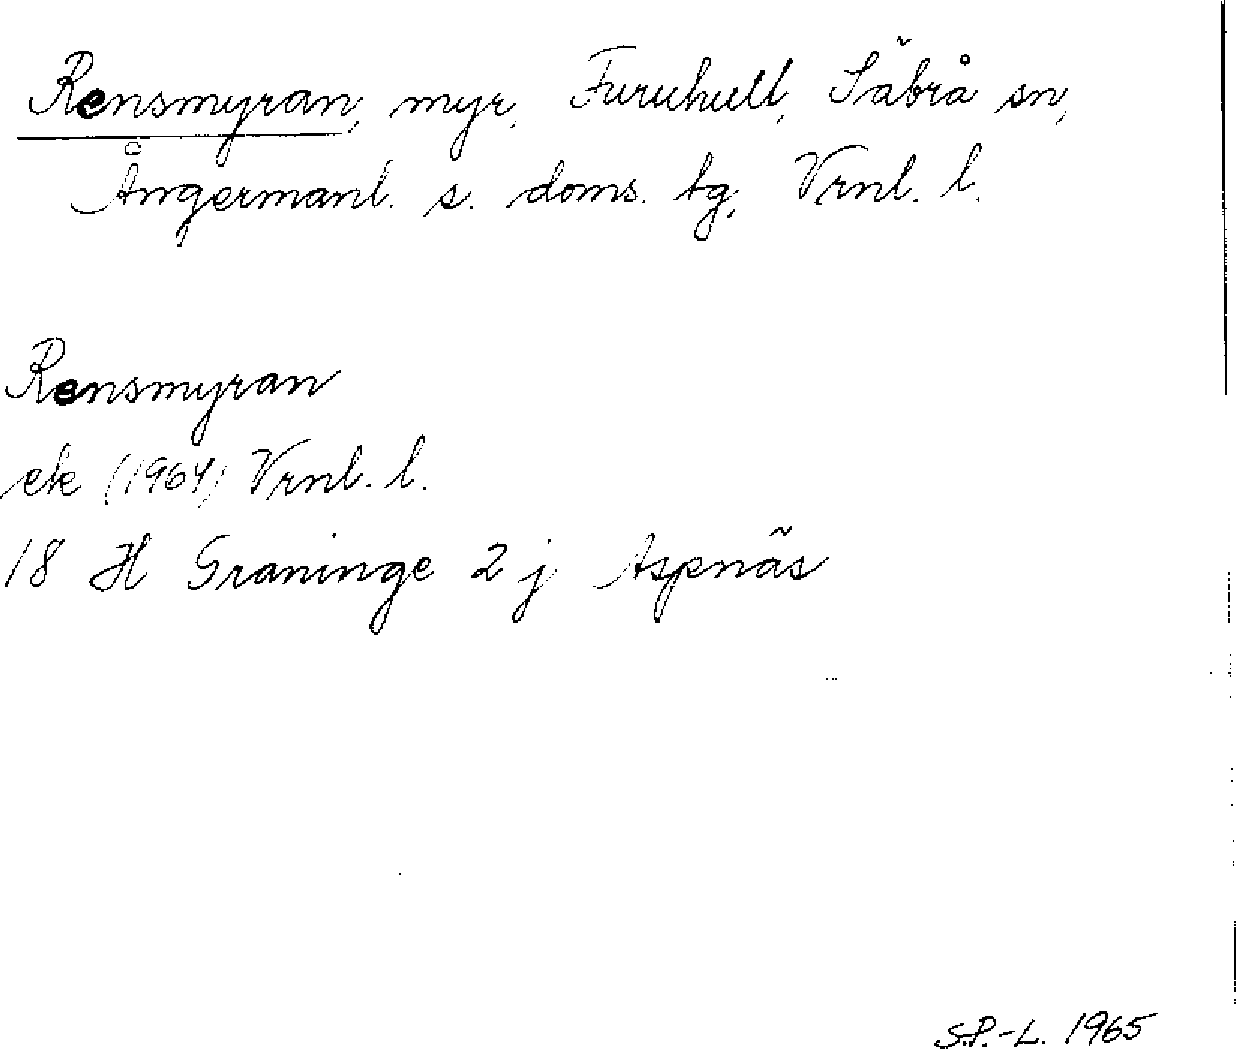 Rensmyran, myr, Furuhult, Säbrå sn,
Ångermanl. s. doms. tg, Vrnl. l.
Rensmyran
ek (1964) Vrnl. l.
18 H Graninge 2 j Aspnäs
S.P.-L. 1965